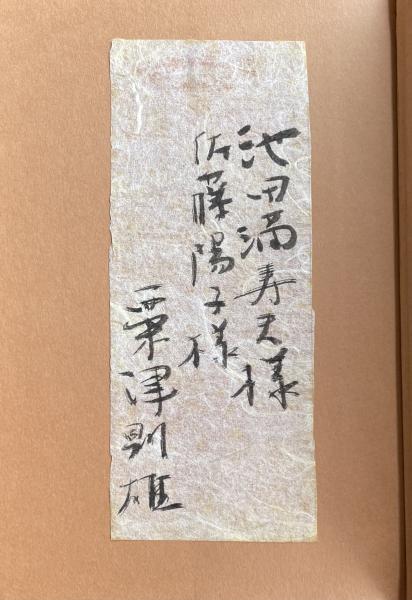 池田満寿夫様
佐藤陽子様
粟津則雄